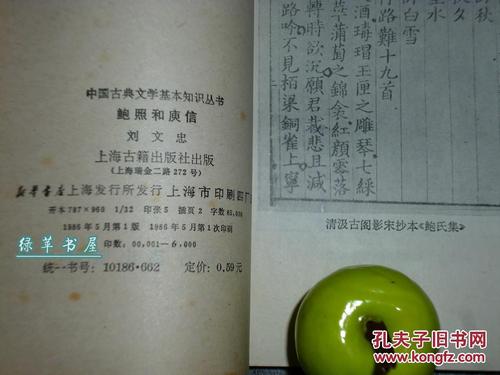 中国古典文学基本知识丛书
鲍照和庾信
刘文忠
上海古籍出版社出版
(上海瑞金二路272号)
新华书店上海发行所发行 上海市印刷四厂
开本787×960 1/32 印张5 插页2 字数83,000
1986年5月第1版 1986年5月第1次印刷
印数:00,001—6,000
统一书号:10186·662 定价:0.59元
绿草书屋
白雪
路難十九首
酒瑇瑁玉匣之雕琴七綵
芙蒲萄之錦衾紅顏零落
轉時欲沉願君裁悲且減
路吟不見栢梁銅雀上寧
清汲古阁影宋抄本《鲍氏集》
孔夫子旧书网
www.kongfz.com